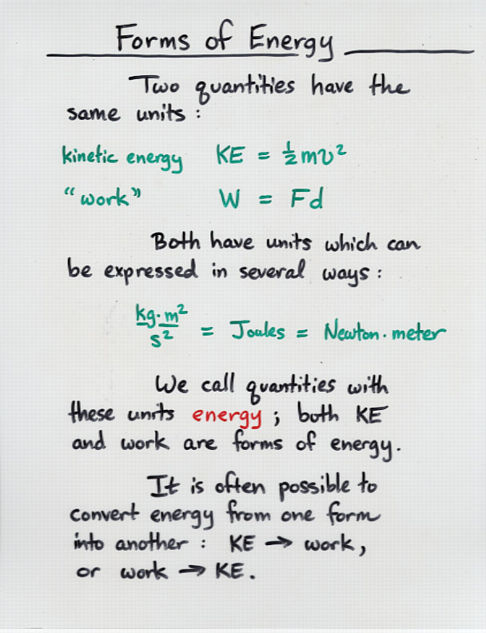 Forms of Energy
Two quantities have the
same units :
kinetic energy KE = ½mv²
"work" W = Fd
Both have units which can
be expressed in several ways :
kg·m²/s² = Joules = Newton·meter
We call quantities with
these units energy ; both KE
and work are forms of energy.
It is often possible to
convert energy from one form
into another : KE → work,
or work → KE.